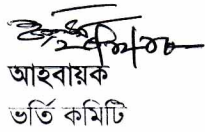 আহবায়ক
ভর্তি কমিটি